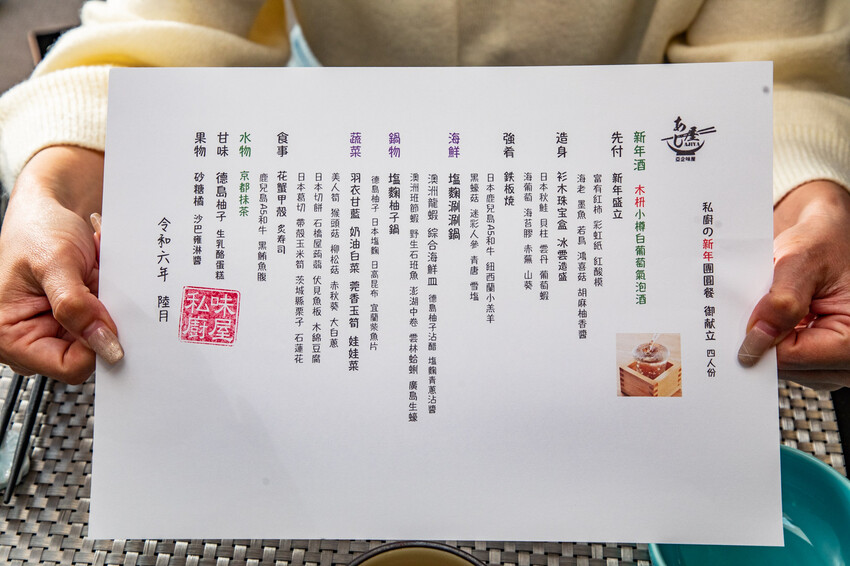 あじ屋
AJIYA
亞企味屋
私廚の新年團圓餐 御献立 四人份
新年酒 木枡小樽白葡萄氣泡酒
先付 新年盛立
富有紅柿 彩虹紙 紅酸模
海老 墨魚 若鳥 鴻喜菇 胡麻柚香醬
造身 衫木珠宝盒 冰雲造盛
日本秋鮭 貝柱 雲丹 葡萄蝦
海葡萄 海苔膠 赤蕪 山葵
強肴 鉄板燒
日本鹿兒島A5和牛 紐西蘭小羔羊
黑蠔菇 迷彩人參 青唐 雪塩
海鮮 塩麴涮涮鍋
澳洲龍蝦 綜合海鮮皿 德島柚子沾醋 塩麴青蔥沾醬
澳洲班節蝦 野生石班魚 澎湖中卷 雲林蛤蜊 廣島生蠔
鍋物 塩麴柚子鍋
德島柚子 日本塩麴 日高昆布 宜蘭紫魚片
蔬菜 羽衣甘藍 奶油白菜 莞香玉筍 娃娃菜
美人筍 猴頭菇 柳松菇 赤秋葵 大白蔥
日本切餅 石橋屋蒟蒻 伏見魚板 木綿豆腐
日本葛切 帶殼玉米筍 茨城縣栗子 石蓮花
食事 花蟹甲殼 炙寿司
鹿兒島A5和牛 黑鮪魚腹
水物 京都抹茶
甘味 德島柚子 生乳酪蛋糕
果物 砂糖橘 沙巴雍淋醬
令和六年 陸月
味屋私廚